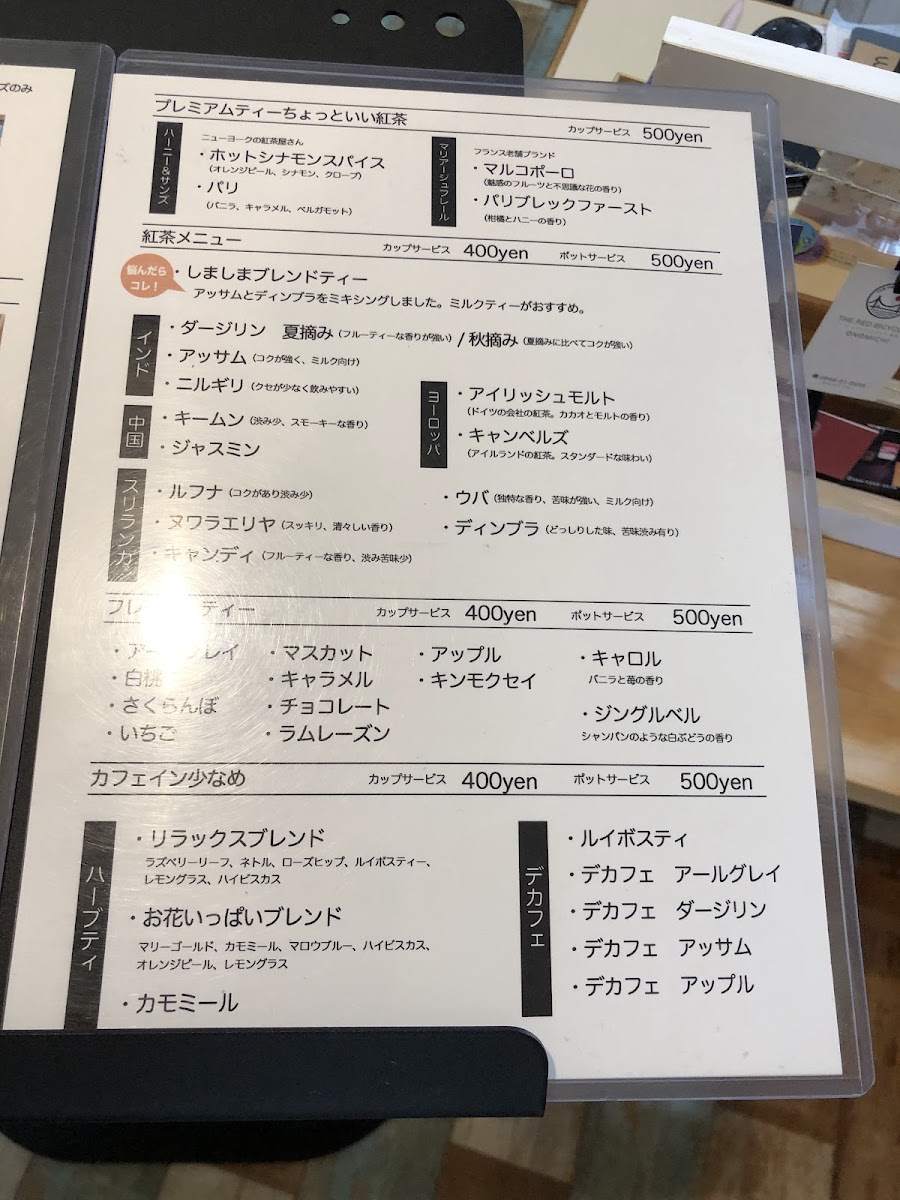 ズのみ
プレミアムティーちょっといい紅茶 カップサービス 500yen
ハーニー&サンズ
ニューヨークの紅茶屋さん
・ホットシナモンスパイス
(オレンジピール、シナモン、クローブ)
・パリ
(バニラ、キャラメル、ベルガモット)
マリアージュフレール
フランス老舗ブランド
・マルコポーロ
(魅惑のフルーツと不思議な花の香り)
・パリブレックファースト
(柑橘とハニーの香り)
紅茶メニュー カップサービス 400yen ポットサービス 500yen
悩んだら
コレ!
・しましまブレンドティー
アッサムとディンブラをミキシングしました。ミルクティーがおすすめ。
インド
・ダージリン 夏摘み(フルーティーな香りが強い)/秋摘み(夏摘みに比べてコクが強い)
・アッサム(コクが強く、ミルク向け)
・ニルギリ(クセが少なく飲みやすい)
中国
・キームン(渋み少、スモーキーな香り)
・ジャスミン
ヨーロッパ
・アイリッシュモルト
(ドイツの会社の紅茶。カカオとモルトの香り)
・キャンベルズ
(アイルランドの紅茶。スタンダードな味わい)
スリランカ
・ルフナ(コクがあり渋み少)
・ヌワラエリヤ(スッキリ、清々しい香り)
・キャンディ(フルーティーな香り、渋み苦味少)
・ウバ(独特な香り、苦味が強い、ミルク向け)
・ディンブラ(どっしりした味、苦味渋み有り)
フレ ティー カップサービス 400yen ポットサービス 500yen
・アールグレイ
・白桃
・さくらんぼ
・いちご
・マスカット
・キャラメル
・チョコレート
・ラムレーズン
・アップル
・キンモクセイ
・キャロル
バニラと苺の香り
・ジングルベル
シャンパンのような白ぶどうの香り
カフェイン少なめ カップサービス 400yen ポットサービス 500yen
ハーブティ
・リラックスブレンド
ラズベリーリーフ、ネトル、ローズヒップ、ルイボスティー、
レモングラス、ハイビスカス
・お花いっぱいブレンド
マリーゴールド、カモミール、マロウブルー、ハイビスカス、
オレンジピール、レモングラス
・カモミール
デカフェ
・ルイボスティ
・デカフェ アールグレイ
・デカフェ ダージリン
・デカフェ アッサム
・デカフェ アップル
THE RED BICYC
ONOMICHI